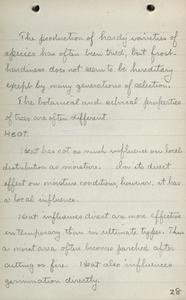 The production of hardy varieties of
species has often been tried, but frost-
hardness does not seem to be hereditary
except by many generations of selection.
The botanical and silvical properties
of trees are often different.
HEAT.
Heat has not as much influence on local
distribution as moisture. In its direct
effect on moisture conditions, however, it has
a local influence.
Heat influences direct are more effective
in temporary than in ultimate types. Thus
a moist area often becomes parched after
cutting or fire. Heat also influences
germination directly.
28